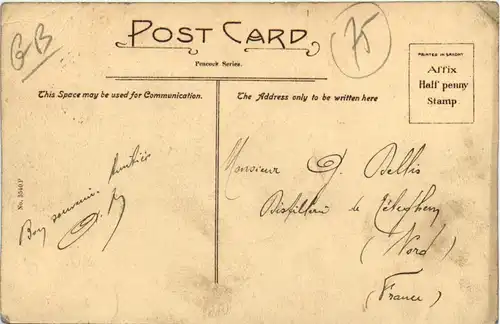 GB
75
POST CARD
Peacock Series.
PRINTED IN SAXONY
Affix
Half penny
Stamp.
This Space may be used for Communication.
The Address only to be written here
No. 5540P
Bon souvenir
Monsieur G. Bellis
Distillerie de
(Nord)
(France)